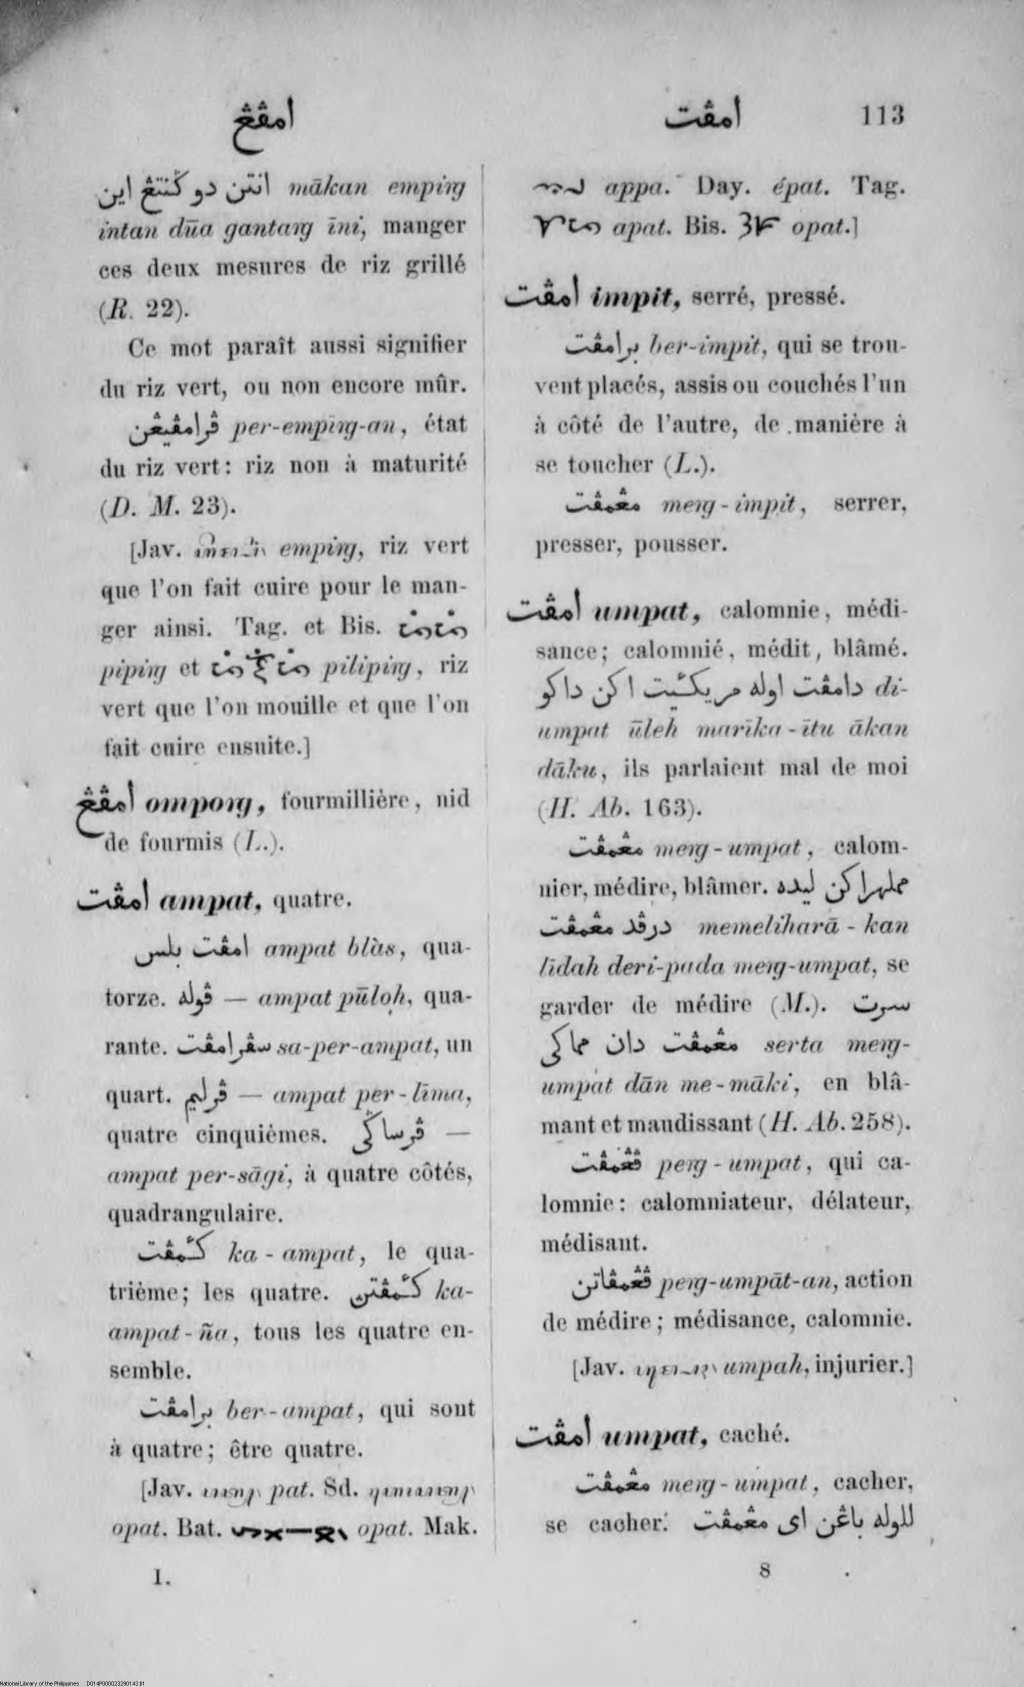 امڤڠ
امڤت 113
انتن دو ݢنتڠ اين mākan emping
intan dūa gantang īni, manger
ces deux mesures de riz grillé
(R. 22).
Ce mot paraît aussi signifier
du riz vert, ou non encore mûr.
ڤرامڤيڠن per-emping-an, état
du riz vert: riz non à maturité
(D. M. 23).
[Jav. emping, riz vert
que l'on fait cuire pour le man-
ger ainsi. Tag. et Bis.
piping et piliping, riz
vert que l'on mouille et que l'on
fait cuire ensuite.]
امڤڠ ompong, fourmillière, nid
de fourmis (L.).
امڤت ampat, quatre.
امڤت بلس ampat blàs, qua-
torze. ڤوله — ampat pūloh, qua-
rante. سڤرامڤت sa-per-ampat, un
quart. ڤرليم — ampat per-līma,
quatre cinquièmes. ڤرساکي —
ampat per-sāgi, à quatre côtés,
quadrangulaire.
کأمڤت ka-ampat, le qua-
trième; les quatre. کأمڤتن ka-
ampat-ña, tous les quatre en-
semble.
برامڤت ber-ampat, qui sont
à quatre; être quatre.
[Jav. pat. Sd.
opat. Bat. opat. Mak.
I.
appa. Day. épat. Tag.
apat. Bis. opat.]
امڤت impit, serré, pressé.
برامڤت ber-impit, qui se trou-
vent placés, assis ou couchés l'un
à côté de l'autre, de manière à
se toucher (L.).
مڠمڤت meng-impit, serrer,
presser, pousser.
امڤت umpat, calomnie, médi-
sance; calomnié, médit, blâmé.
دامڤت اوله مريكئيت اكن داكو di-
umpat ūleh marīka-ītu ākan
dāku, ils parlaient mal de moi
(H. Ab. 163).
مڠمڤت meng-umpat, calom-
nier, médire, blâmer. مملهراكن ليده
درڤد مڠمڤت memeliharā-kan
līdah deri-pada meng-umpat, se
garder de médire (M.). سرت
مڠمڤت دان مماكي serta meng-
umpat dān me-māki, en blâ-
mant et maudissant (H. Ab. 258).
ڤڠمڤت peng-umpat, qui ca-
lomnie: calomniateur, délateur,
médisant.
ڤڠمڤاتن peng-umpāt-an, action
de médire; médisance, calomnie.
[Jav. umpah, injurier.]
امڤت umpat, caché.
مڠمڤت meng-umpat, cacher,
se cacher. للوله باڠن اى مڠمڤت
8
National Library of the Philippines